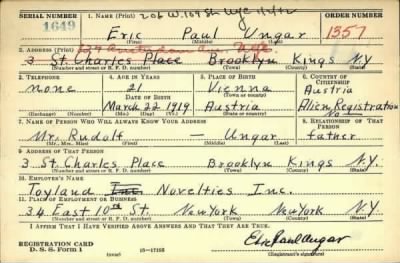 SERIAL NUMBER 1. NAME (Print) ORDER NUMBER
1649 Eric Paul Ungar 1357
(First) (Middle) (Last)
2. ADDRESS (Print)
3 St. Charles Place Brooklyn Kings N.Y.
(Number and street or R. F. D. number) (Town) (County) (State)
3. TELEPHONE 4. AGE IN YEARS 5. PLACE OF BIRTH 6. COUNTRY OF CITIZENSHIP
none 21 Vienna Austria
DATE OF BIRTH
March 22 1919 Austria Alien Registration No -
(Exchange) (Number) (Mo.) (Day) (Yr.) (State or country)
7. NAME OF PERSON WHO WILL ALWAYS KNOW YOUR ADDRESS 8. RELATIONSHIP OF THAT PERSON
Mr. Rudolf - Ungar father
(Mr., Mrs., Miss) (First) (Middle) (Last)
9. ADDRESS OF THAT PERSON
3 St Charles Place Brooklyn Kings N.Y.
(Number and street or R. F. D. number) (Town) (County) (State)
10. EMPLOYER'S NAME
Toyland Inc Novelties Inc.
11. PLACE OF EMPLOYMENT OR BUSINESS
34 East 10th St. New York New York N.Y.
(Number and street or R. F. D. number) (Town) (County) (State)
I AFFIRM THAT I HAVE VERIFIED ABOVE ANSWERS AND THAT THEY ARE TRUE.
REGISTRATION CARD
D. S. S. Form 1 (over) 16-17105 Eric Paul Ungar
(Registrant's signature)